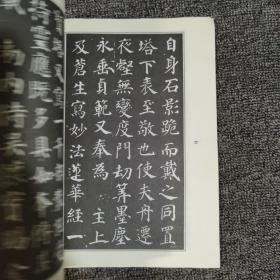 自身石影跪而戴之同置
塔下表至敬也使夫舟遷
夜壑無變度門劫算墨塵
永垂貞範又奉為 主上
及蒼生寫妙法蓮華經一
符靈應既多具如